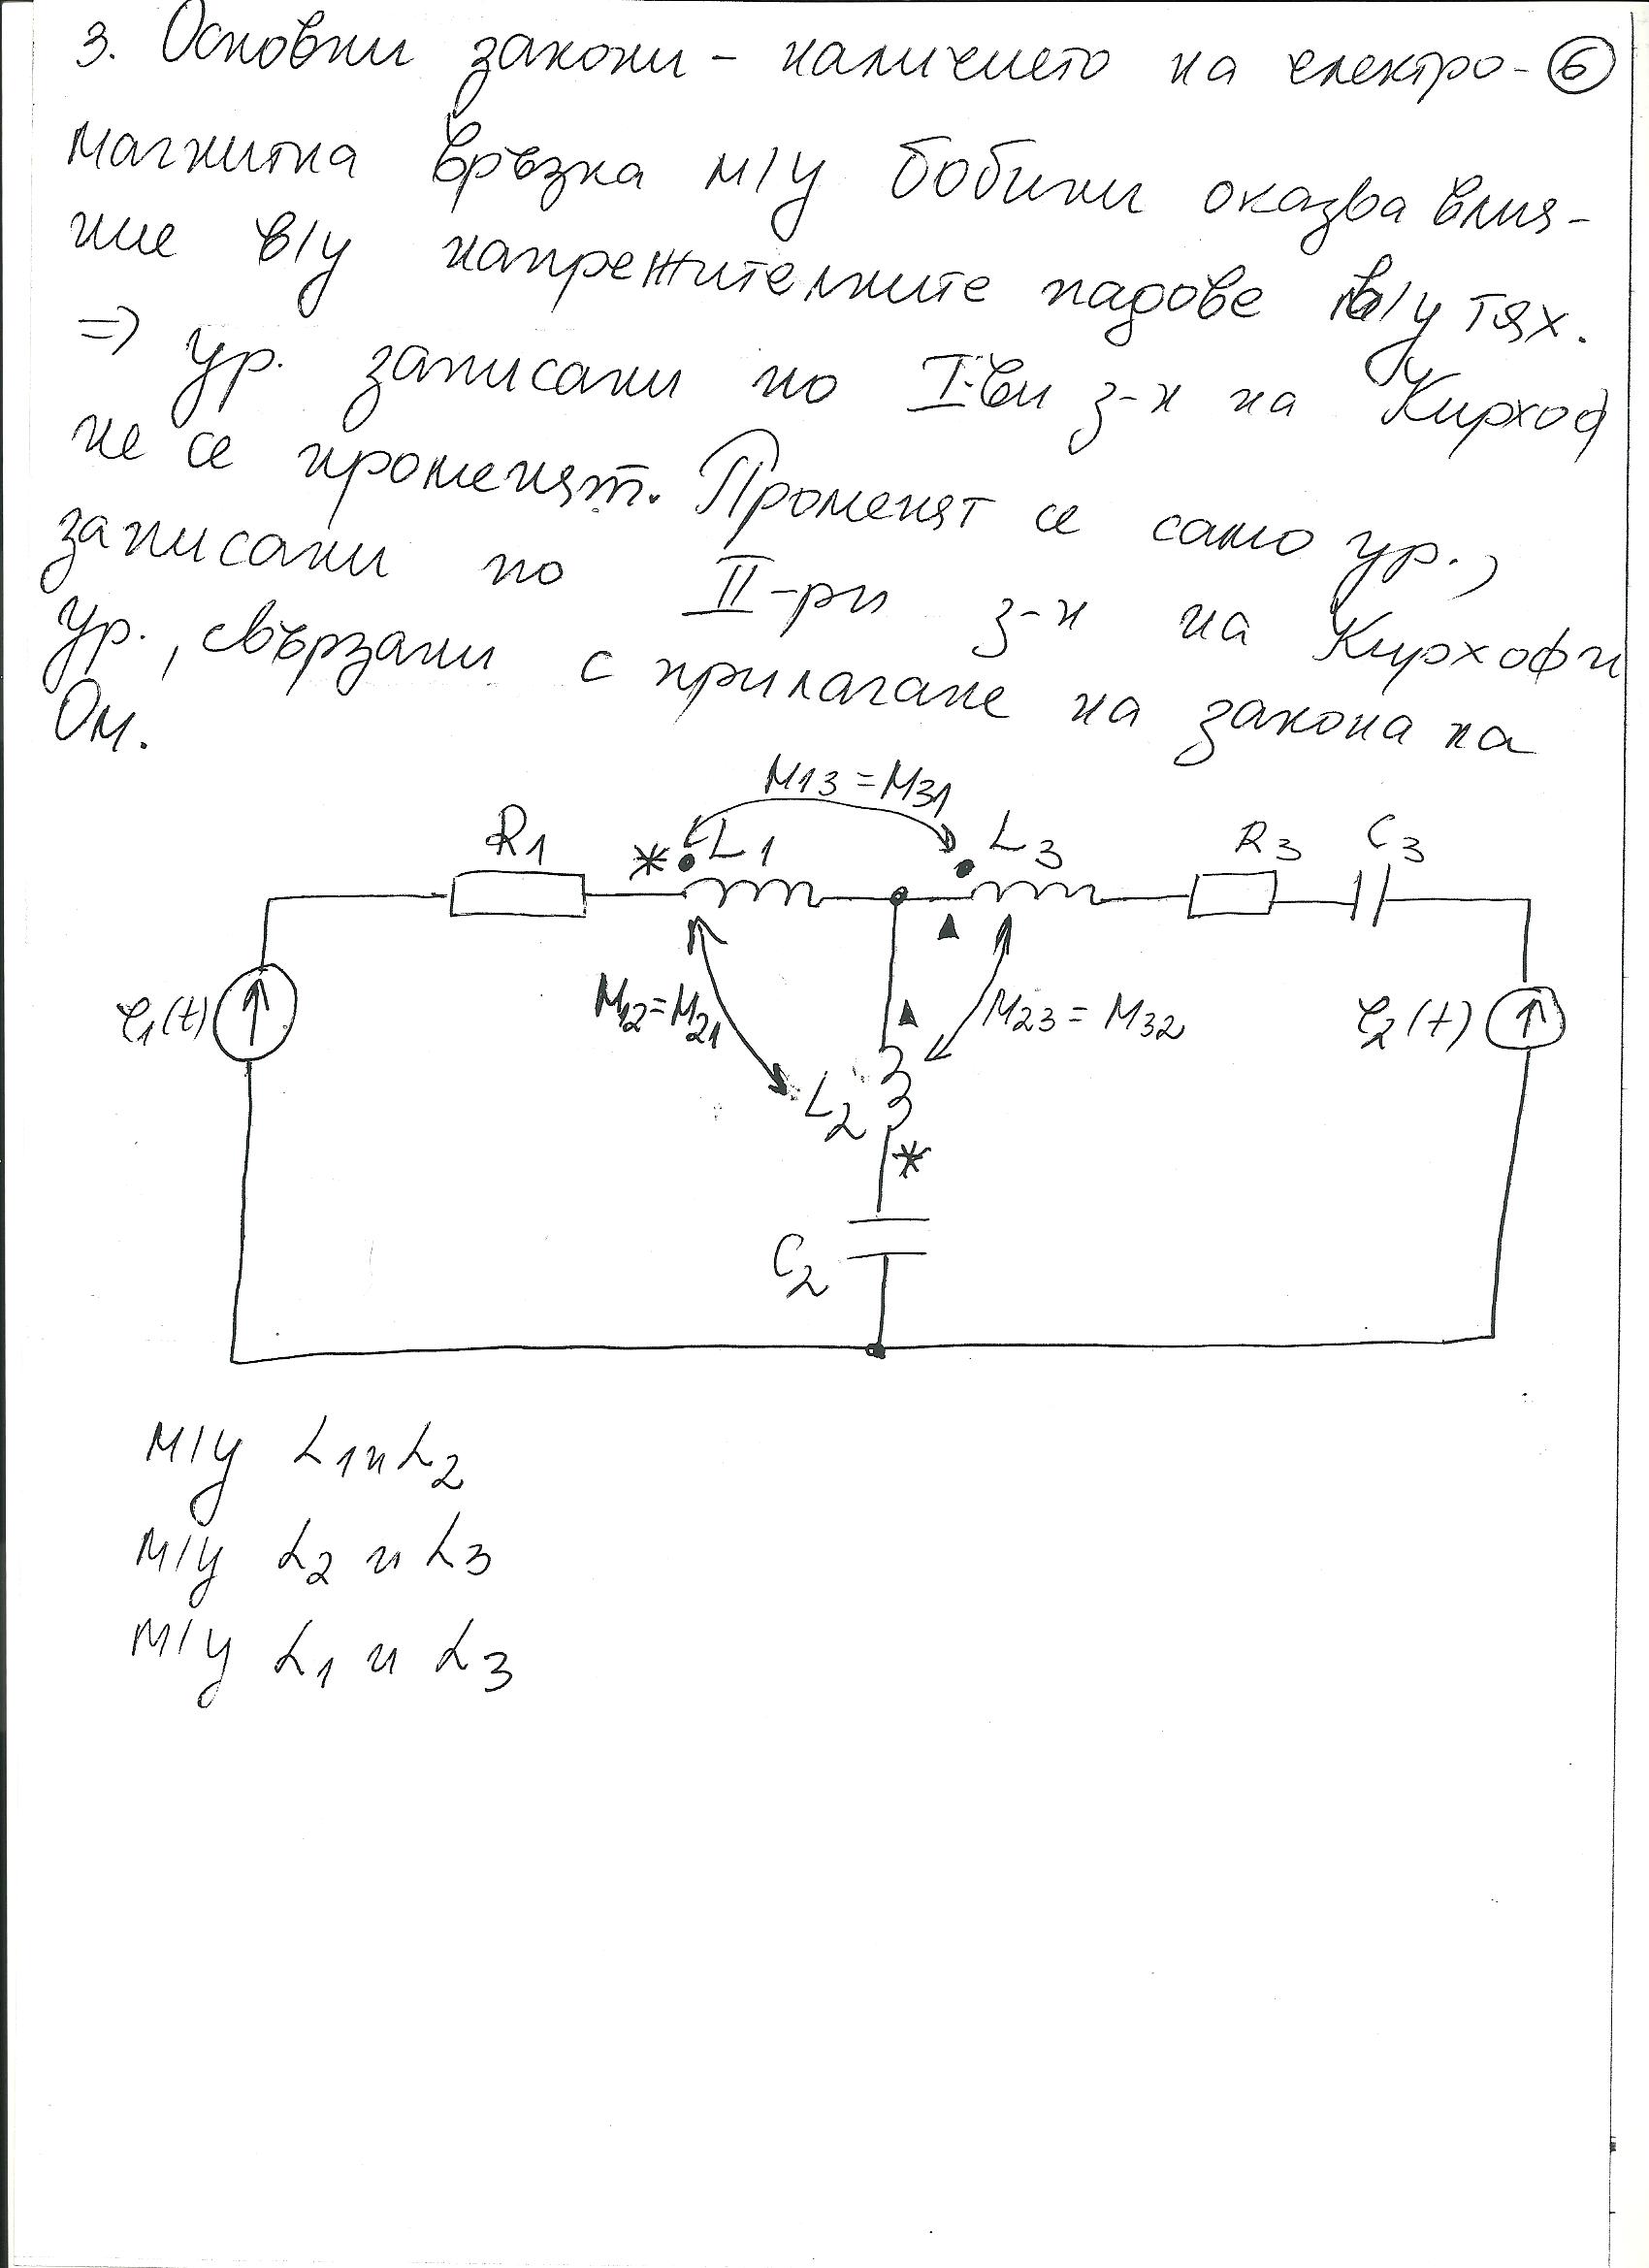 3. Основни закони - наличието на електро- 6
магнитна връзка м/у бобини оказва влия-
ние в/у напрежителните падове в/у тях.
=> ур. записани по I-ви з-н на Кирхоф
не се променят. Променят се само ур.,
записани по II-ри з-н на Кирхоф и
ур., свързани с прилагане на закона на
Ом.
M13 = M31
R1 * L1 L3 R3 C3
M12 = M21 M23 = M32
e1(t) e2(t)
L2
*
C2
М/у L1 и L2
М/у L2 и L3
М/у L1 и L3